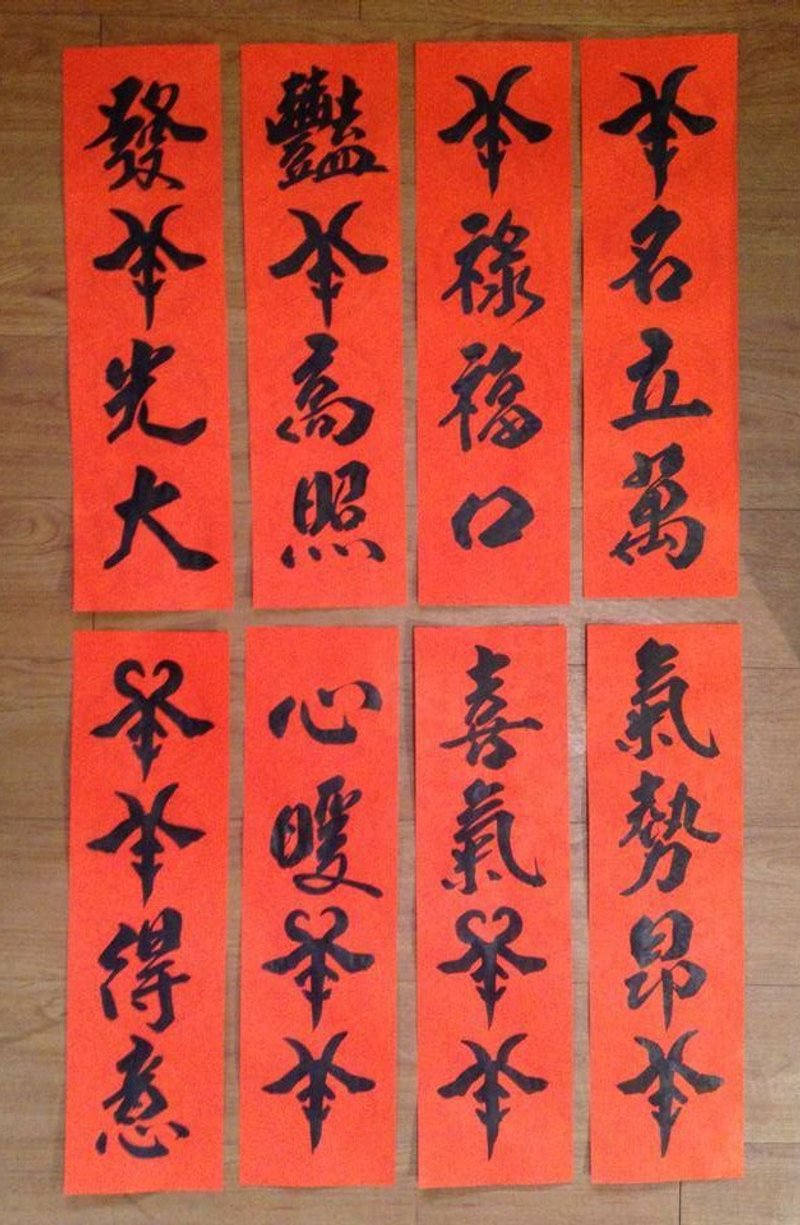 羊名立萬
羊祿福口
豔羊高照
發羊光大
氣勢昂羊
喜氣羊羊
心暖羊羊
羊羊得意